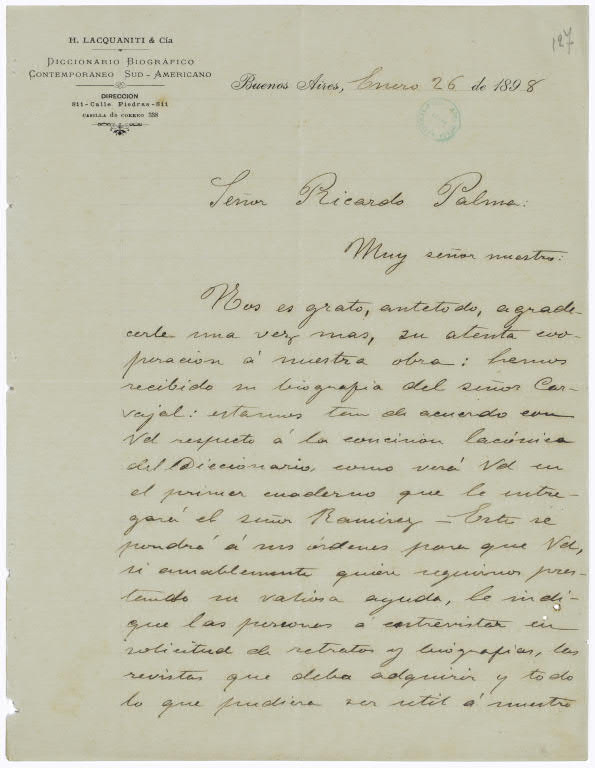 H. LACQUANITI & Cía
DICCIONARIO BIOGRÁFICO
CONTEMPORANEO SUD-AMERICANO
DIRECCION
811-Calle Piedras-811
CASILLA de CORREO 358
127
Buenos Aires, Enero 26 de 1898
Señor Ricardo Palma:
Muy señor nuestro:
Nos es grato, antetodo, agrade-
cerle una vez mas, su atenta coo-
peracion á nuestra obra: hemos
recibido su biografia del señor Car-
vajal: estamos tan de acuerdo con
Vd respecto á la concision lacónica
del Diccionario, como verá Vd en
el primer cuaderno que le entre-
gará el señor Ramirez — Este se
pondrá á sus órdenes para que Vd,
si amablemente quiere seguirnos pres-
tando su valiosa ayuda, le indi-
que las personas á entrevistar en
solicitud de retratos y biografias, las
revistas que deba adquirir y todo
lo que pudiera ser util á nuestro